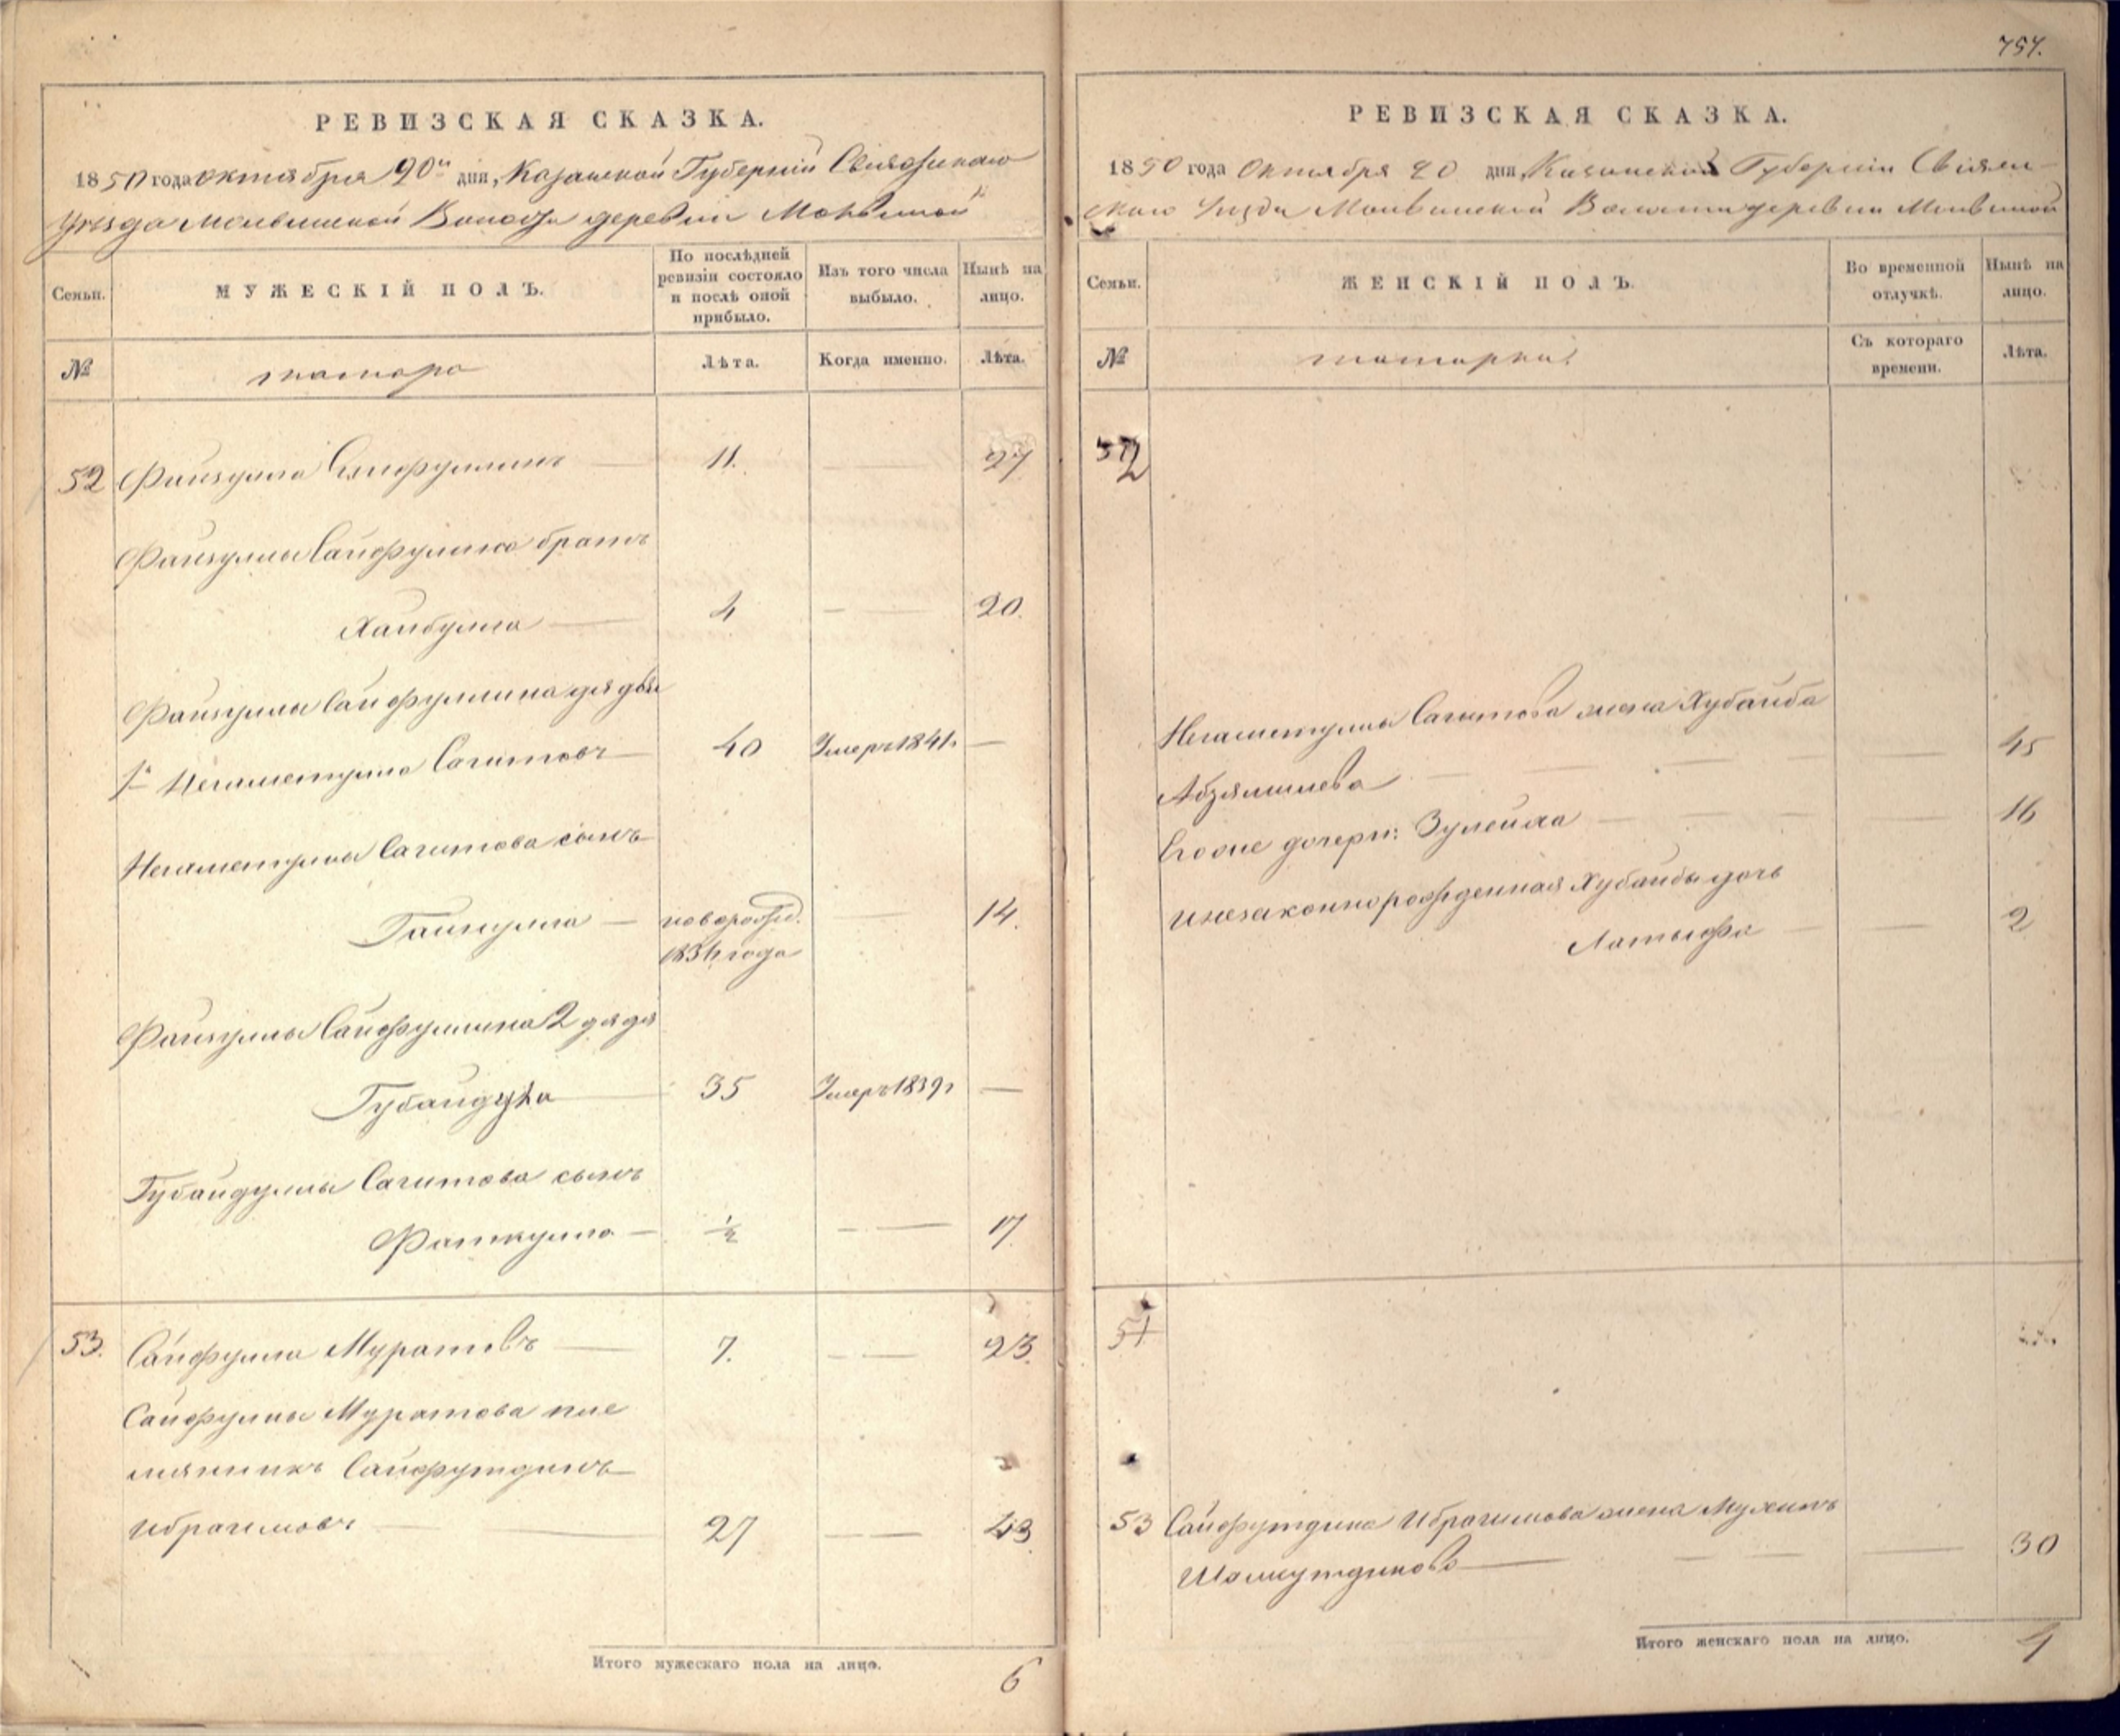 РЕВИЗСКАЯ СКАЗКА.
1850 года октября 20 дня, Казанской Губерніи Свіяжскаго
Уѣзда Молвинской Волости деревни Молвиной
Семьи. МУЖЕСКІЙ ПОЛЪ. По послѣдней ревизіи состояло и послѣ оной прибыло. Изъ того числа выбыло. Нынѣ на лицо.
№ татара Лѣта. Когда именно. Лѣта.
52 Файзулла Сейфуллинъ — 11. — 27
Файзуллы Сайфуллина братъ
Хайбулла — 4 — 20.
Файзуллы Сайфуллина дядья
1й Негаметулла Сагитовъ — 40 Умеръ 1841г —
Негаметуллы Сагитова сынъ
Гайнулла — новорожд. — 14.
1834 года
Файзуллы Сайфуллина 2 дядя
Губайдулла 35 Умеръ 1839г —
Губайдуллы Сагитова сынъ
Фаткулла — ½ — 17
53. Сайфулла Муратовъ — 7. — 23.
Сайфуллы Муратова пле
мянникъ Сайфутдинъ
Ибрагимовъ — 27 — 43.
Итого мужескаго пола на лицо. 6
757.
РЕВИЗСКАЯ СКАЗКА.
1850 года Октября 20 дня, Казанской Губерніи Свіяж-
скаго Уѣзда Молвинской Волости деревни Молвиной
Семьи. ЖЕНСКІЙ ПОЛЪ. Во временной отлучкѣ. Нынѣ на лицо.
№ татарки Съ котораго времени. Лѣта.
52
Негаметуллы Сагитова жена Хубайба
Абдяшлева — — 45
Егоже дочери: Зулейха — 16
Инезаконнорожденная Хубайбы дочь
Латыфа — — 2
53 Сайфутдина Ибрагимова жена
Шамсутдинова — — 30
Итого женскаго пола на лицо. 4